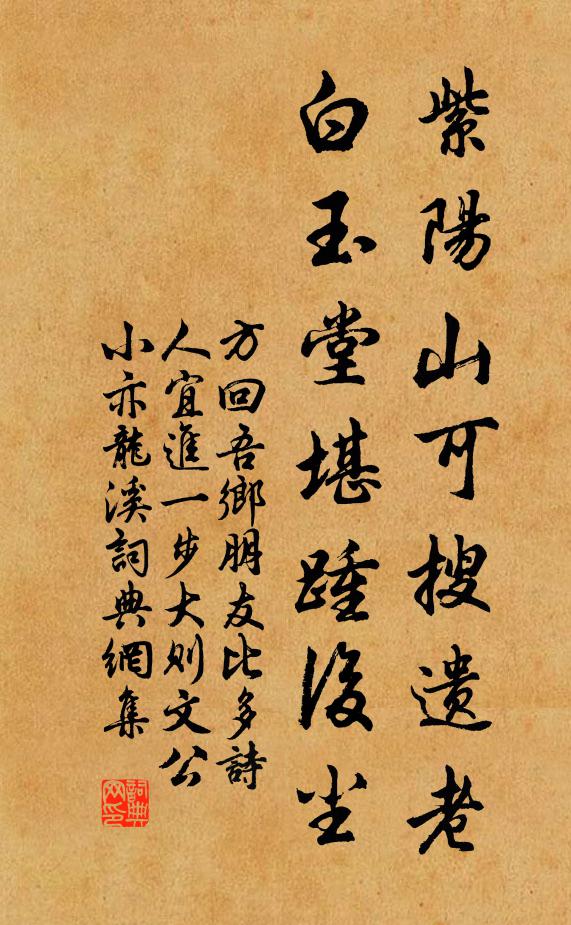 紫陽山可搜遺老
白玉堂堪踵後尘
方回吾鄉朋友比多詩
人宜進一步大则文公
小亦龍溪詞典網集
詞典網印